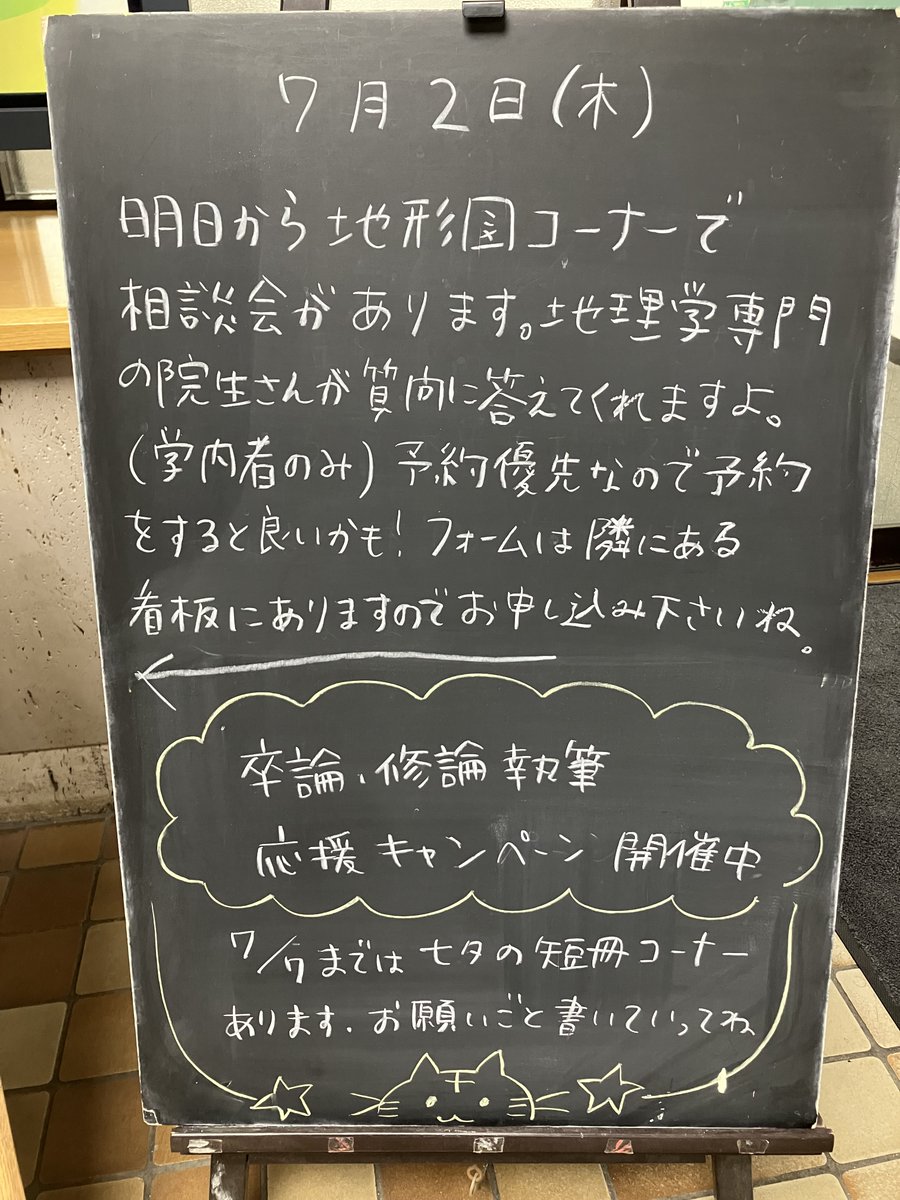 7月2日(木)
明日から地形図コーナーで
相談会があります。地理学専門
の院生さんが質問に答えてくれますよ。
(学内者のみ)予約優先なので予約
をすると良いかも!フォームは隣にある
看板にありますのでお申し込み下さいね。
卒論、修論執筆
応援キャンペーン開催中
7/7までは七夕の短冊コーナー
あります、お願いごと書いていってね